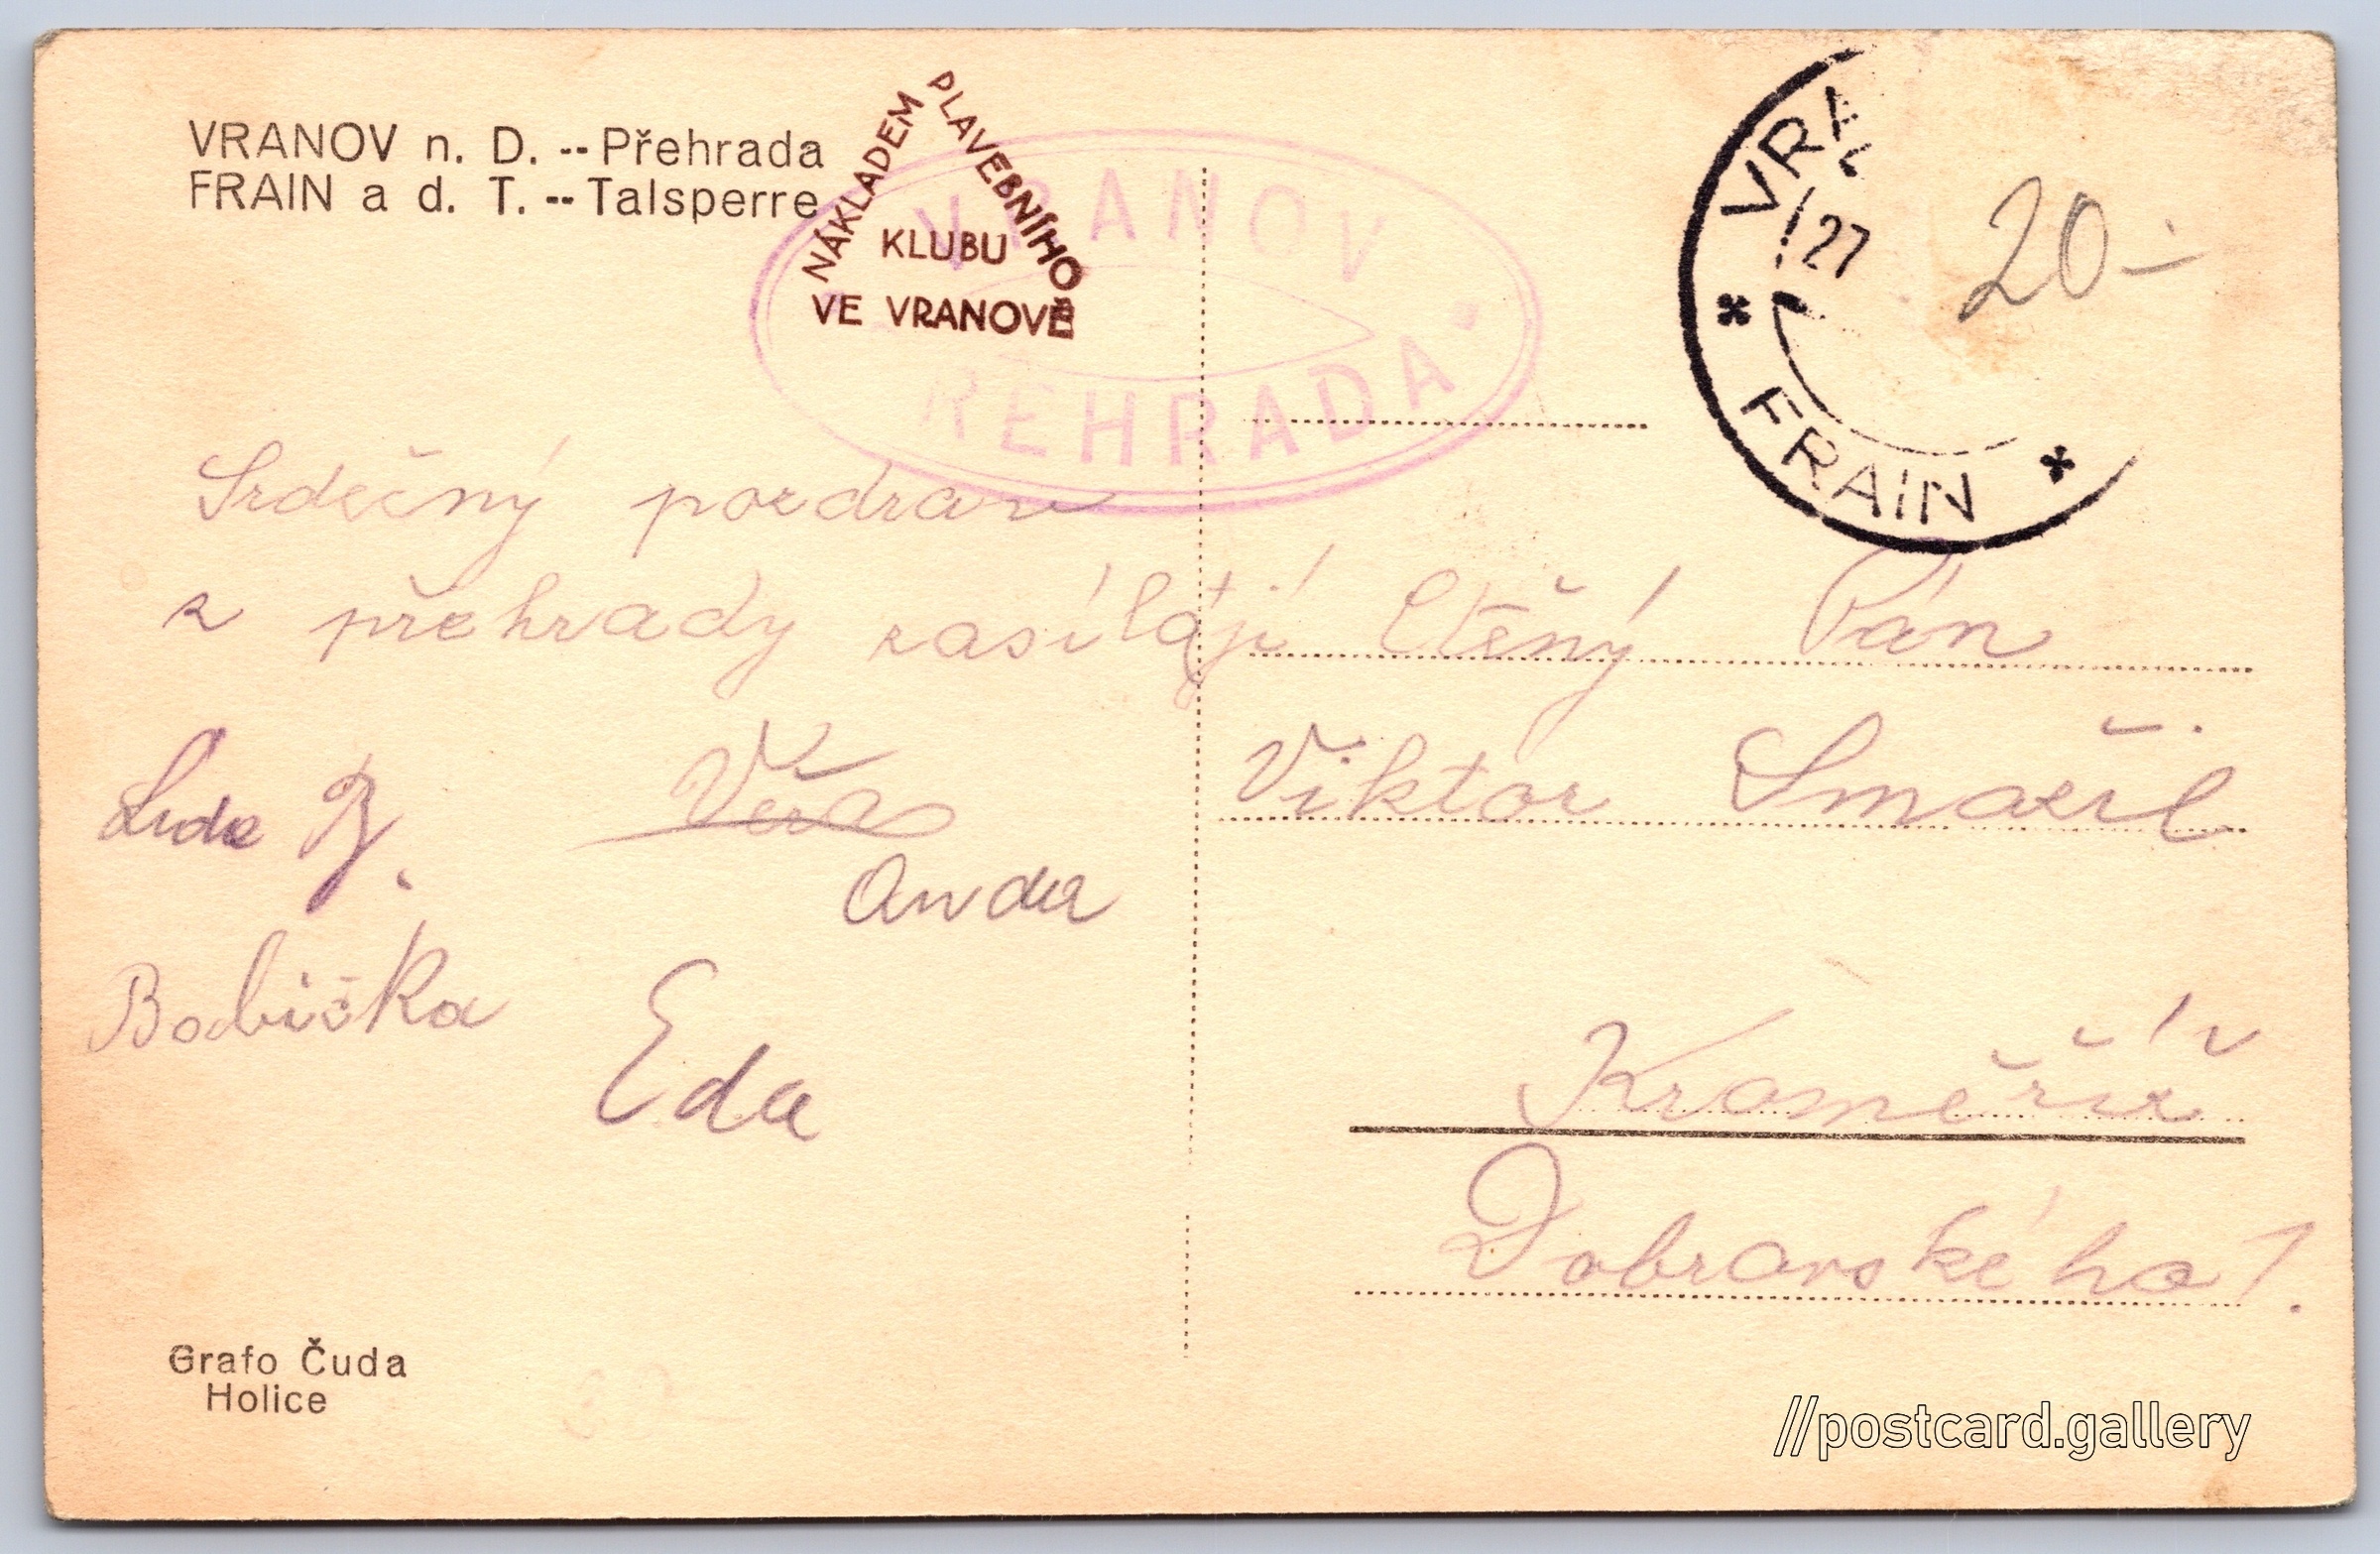 VRANOV n. D. -- Přehrada
FRAIN a d. T. -- Talsperre
NÁKLADEM PLAVEBNÍHO
KLUBU
VE VRANOVĚ
VRANOV
PŘEHRADA
VRA
27
FRAIN
20.-
Srdečný pozdrav
z přehrady zasílají
Luda B.
Věra
Anda
Babička
Eda
Ctěný Pán
Viktor Smažil
Kroměříž
Dobrovského 7.
Grafo Čuda
Holice
//postcard.gallery